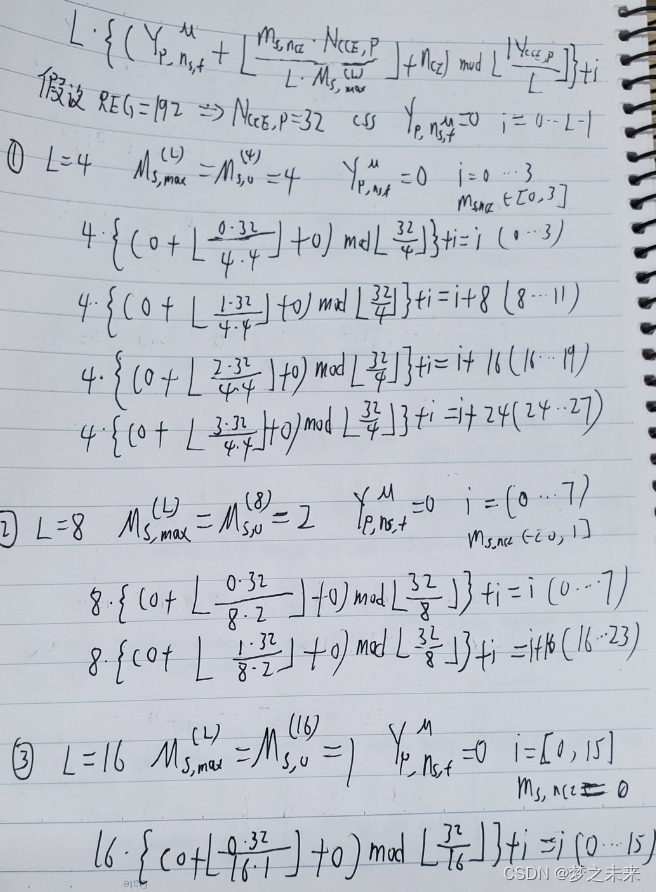 L·{(Y^μ_{p,ns,f} + ⌊m_{s,ncz}·N_{CCE,P} / L·M^{(L)}_{s,max}⌋ + n_{CZ}) mod ⌊N_{CCE,P}/L⌋}+i
假设 REG=192 ⇒ N_{CCE,P}=32 CSS Y^μ_{p,ns,f}=0 i=0…L-1
① L=4 M^{(L)}_{s,max}=M^{(4)}_{s,0}=4 Y^μ_{p,ns,f}=0 i=0…3
m_{s,ncz}∈[0,3]
4·{(0+⌊0·32/4·4⌋+0) mod⌊32/4⌋}+i=i (0…3)
4·{(0+⌊1·32/4·4⌋+0) mod⌊32/4⌋}+i=i+8 (8…11)
4·{(0+⌊2·32/4·4⌋+0) mod⌊32/4⌋}+i=i+16(16…19)
4·{(0+⌊3·32/4·4⌋+0) mod⌊32/4⌋}+i=i+24(24…27)
② L=8 M^{(L)}_{s,max}=M^{(8)}_{s,0}=2 Y^μ_{p,ns,f}=0 i=(0…7)
m_{s,ncz}∈[0,1]
8·{(0+⌊0·32/8·2⌋+0) mod⌊32/8⌋}+i=i (0…7)
8·{(0+⌊1·32/8·2⌋+0) mod⌊32/8⌋}+i=i+16(16…23)
③ L=16 M^{(L)}_{s,max}=M^{(16)}_{s,0}=1 Y^μ_{p,ns,f}=0 i=[0,15]
m_{s,ncz}=0
16·{(0+⌊0·32/16·1⌋+0) mod⌊32/16⌋}+i=i(0…15)
CSDN @梦之未来